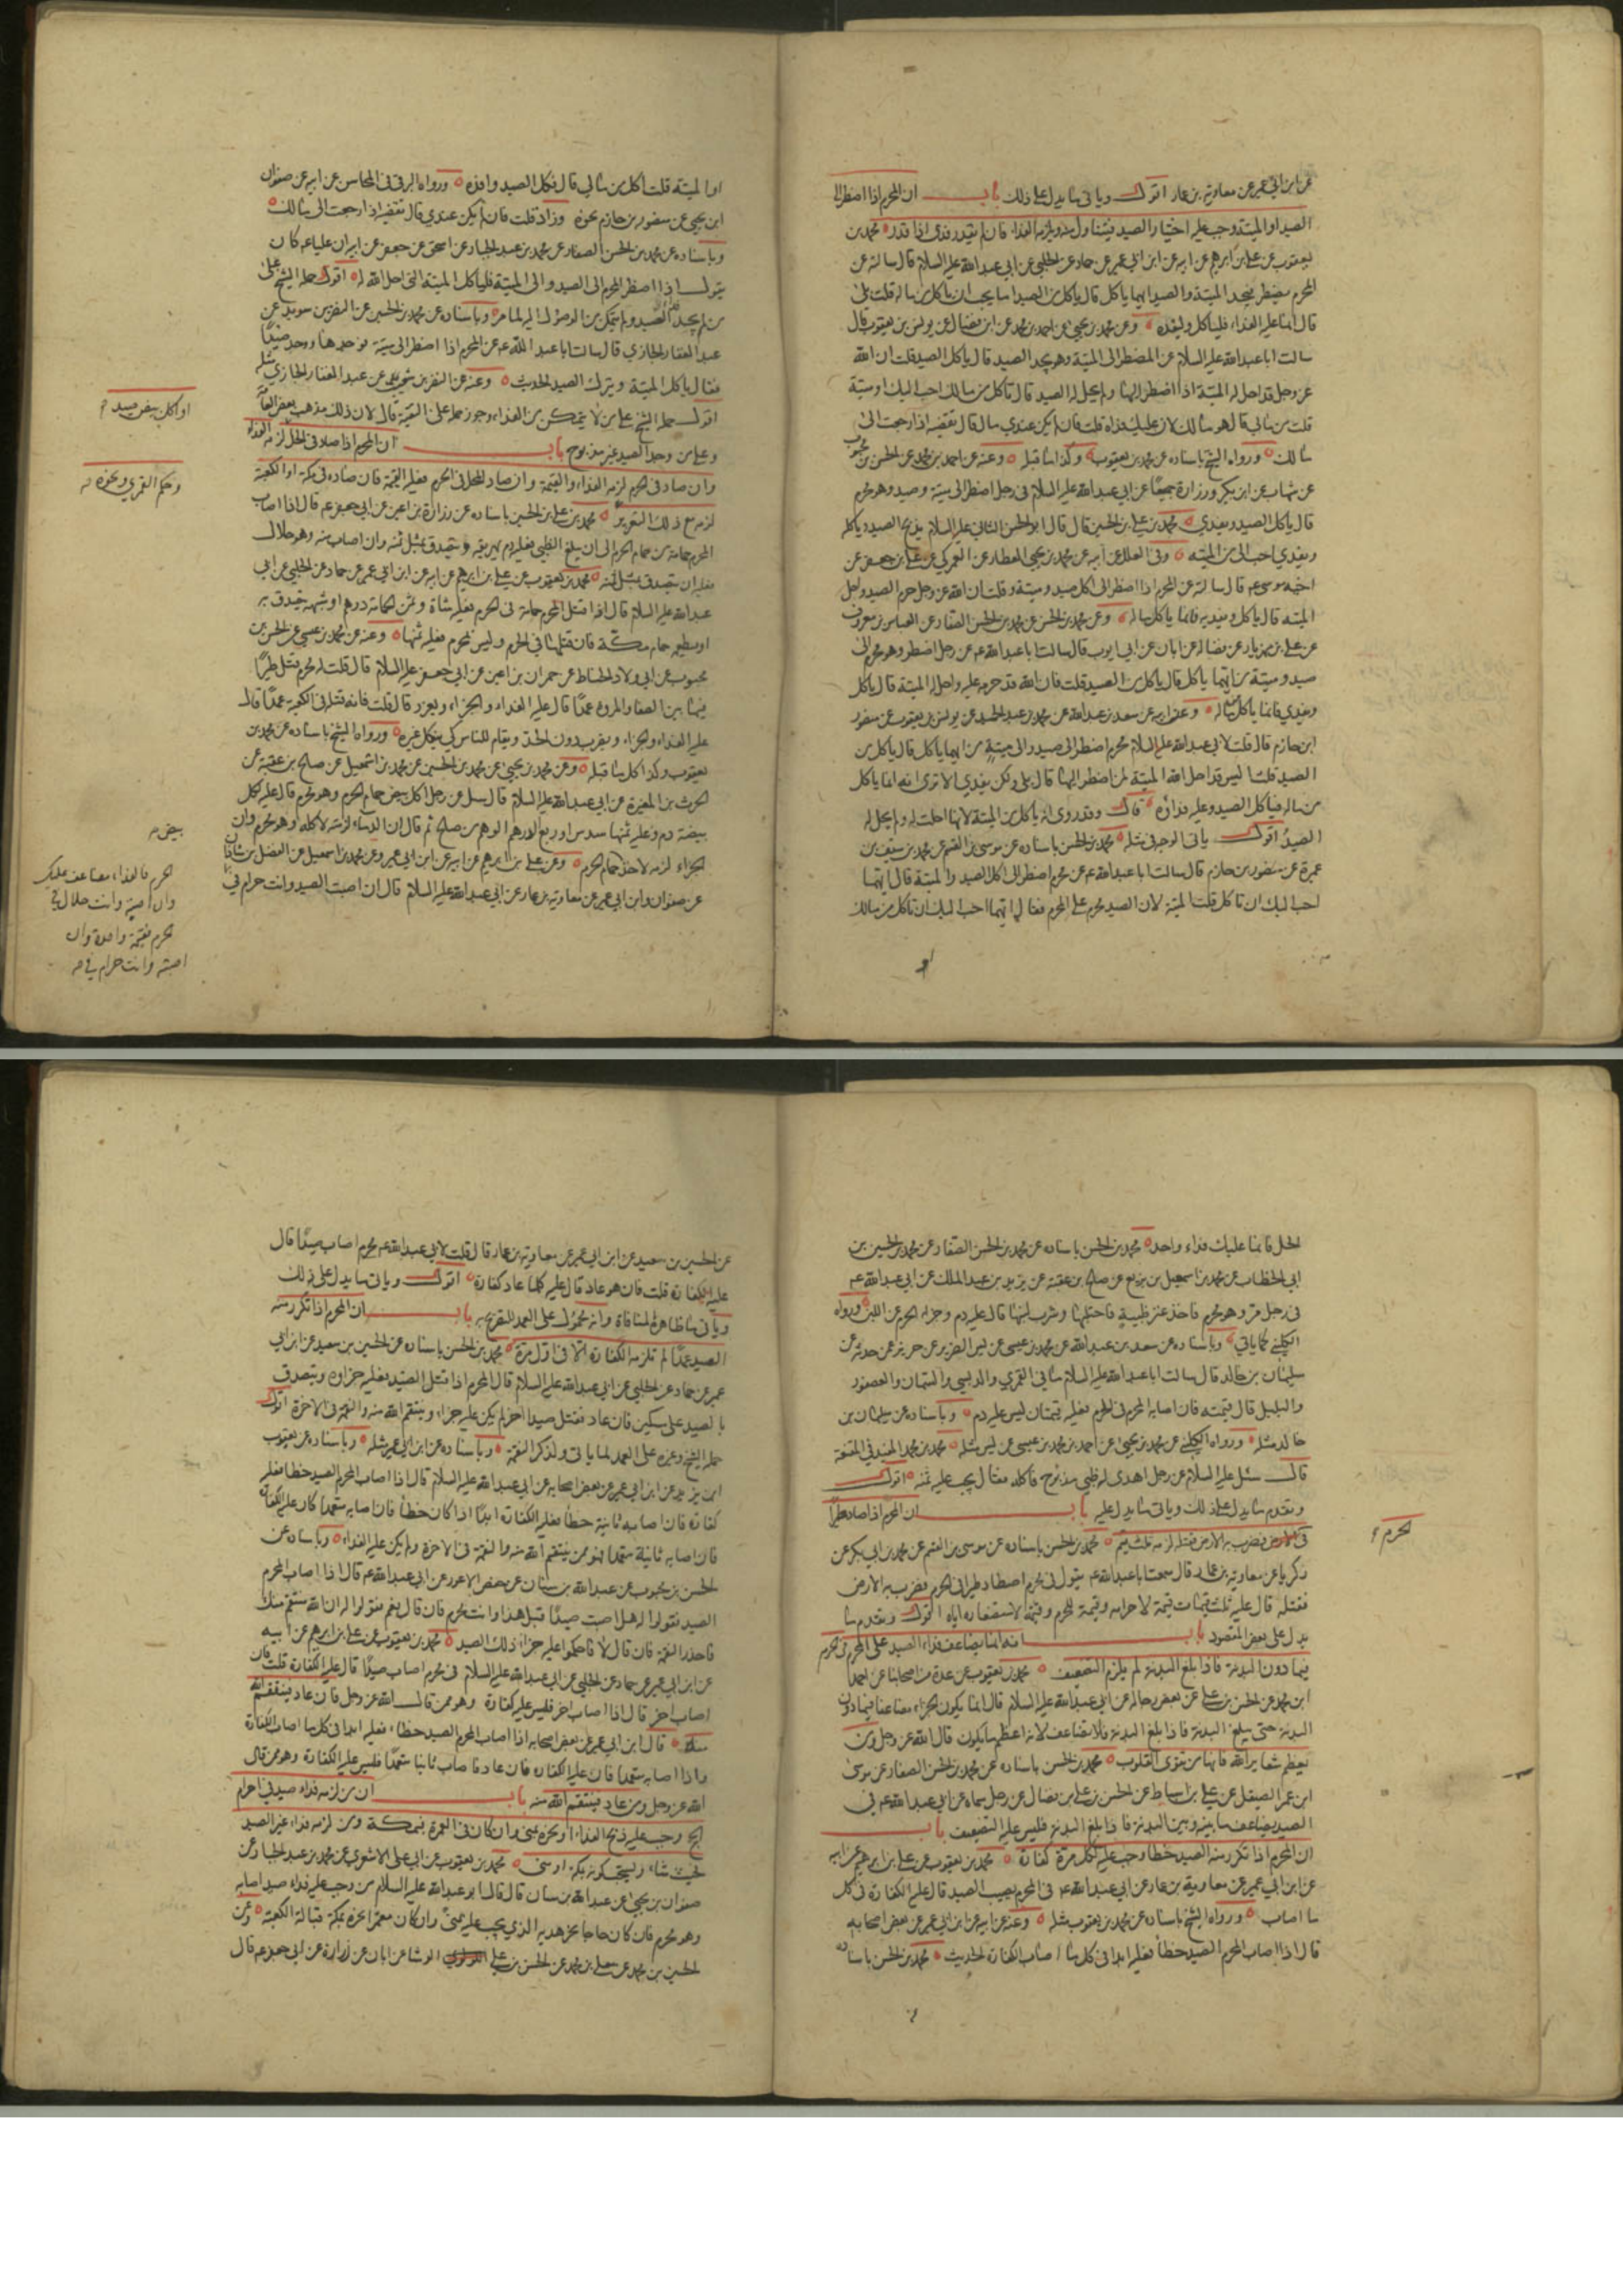 عن ابن ابي عمير عن معاوية بن عمار اقول وياتى ما يدل على ذلك باب ان المحرم اذا اضطر الى
الصيد او الميتة وجب عليه اختيار الصيد فيتناول منه ويلزمه الفداء فان لم يقدر فدى اذا قدر محمد بن
يعقوب عن علي بن ابرهيم عن ابيه عن ابن ابي عمير عن حماد عن الحلبي عن ابي عبد الله عليه السلام قال سالته عن
المحرم يضطر فيجد الميتة والصيد ايهما ياكل قال ياكل من الصيد اما يحب ان ياكل من ماله قلت بلى
قال انما عليه الفداء فلياكل وليفده وعن محمد بن يحيى عن احمد بن محمد عن ابن فضال عن يونس بن يعقوب قال
سالت ابا عبد الله عليه السلام عن المضطر الى الميتة وهو يجد الصيد قال ياكل الصيد قلت ان الله
عز وجل قد احل له الميتة اذا اضطر اليها ولم يحل له الصيد قال تاكل من مالك احب اليك او ميتة
قلت من مالي قال هو مالك لان عليك فداه قلت فان لم يكن عندي مال قال تقضيه اذا رجعت الى
مالك ورواه الشيخ باسناده عن محمد بن يعقوب وكذا ما قبله وعنه عن احمد بن محمد عن الحسن بن محبوب
عن شهاب عن ابن بكير وزرارة جميعا عن ابي عبد الله عليه السلام فى رجل اضطر الى ميتة وصيد وهو محرم
قال ياكل الصيد ويفدي محمد بن علي بن الحسين قال قال ابو الحسن الثاني عليه السلام يذبح الصيد وياكله
ويفدي احب الي من الميتة وفى العلل عن ابيه عن محمد بن يحيى العطار عن العمركي عن علي بن جعفر عن
اخيه موسى عه قال سالته عن المحرم اذا اضطر الى اكل صيد وميتة وقلت ان الله عز وجل حرم الصيد واحل
الميتة قال ياكل ويفديه فانما ياكل ماله وعن محمد بن الحسن عن محمد بن الحسن الصفار عن العباس بن معروف
عن علي بن مهزيار عن فضالة عن ابان عن ابي ايوب قال سالت ابا عبد الله عه عن رجل اضطر وهو محرم الى
صيد وميتة من ايهما ياكل قال ياكل من الصيد قلت فان الله قد حرمه عليه واحل له الميتة قال ياكل
ويفدي فانما ياكل ماله وعن ابيه عن سعد بن عبد الله عن محمد بن عبد الحميد عن يونس بن يعقوب عن منصور
ابن حازم قال قلت لابي عبد الله عليه السلام محرم اضطر الى صيد والى ميتة من ايهما ياكل قال ياكل من
الصيد قلت اليس قد احل الله الميتة لمن اضطر اليها قال بلى ولكن يفدي الا ترى انه انما ياكل
من ماله فياكل الصيد وعليه فداؤه قال وقد روى انه ياكل من الميتة لانها احلت له ولم يحل له
الصيد اقول ياتى الوجه فى مثله محمد بن الحسن باسناده عن موسى بن القسم عن محمد بن سيف بن
عميرة عن منصور بن حازم قال سالت ابا عبد الله عه عن محرم اضطر الى اكل الصيد والميتة قال ايهما
احب اليك ان تاكل قلت الميتة لان الصيد محرم على المحرم فقال ايهما احب اليك ان تاكل من مالك
او
او الميتة قلت اكل من مالي قال فكل الصيد وافده ورواه البرقى فى المحاسن عن ابيه عن صفوان
ابن يحيى عن منصور بن حازم نحوه وزاد قلت فان لم يكن عندي قال تقضيه اذا رجعت الى مالك
وباسناده عن محمد بن الحسن الصفار عن محمد بن عبد الجبار عن اسحق عن جعفر عن ابيه ان عليا عه كان
يقول اذا اضطر المحرم الى الصيد والى الميتة فلياكل الميتة التى احل الله له اقول حمله الشيخ على
من لم يجد فداء الصيد ولم يتمكن من الوصول اليه لما مر وباسناده عن محمد بن الحسين عن النضر بن سويد عن
عبد الغفار الجازي قال سالت ابا عبد الله عه عن المحرم اذا اضطر الى ميتة فوجدها ووجد صيدا
فقال ياكل الميتة ويترك الصيد الحديث وعنه عن النضر بن شعيب عن عبد الغفار الجازي مثله
اقول حمله الشيخ على من لا يتمكن من الفداء وجوز حمله على التقية قال لان ذلك مذهب بعض العامة
وعلى من وجد الصيد غير مذبوح باب ان المحرم اذا صاد فى الحل لزمه الفداء
وان صاد فى الحرم لزمه الفداء والقيمة وان صاد المحل فى الحرم فعليه القيمة فان صاده فى مكة او الكعبة
لزمه مع ذلك التعزير محمد بن علي بن الحسين باسناده عن زرارة بن اعين عن ابي جعفر عه قال اذا اصاب
المحرم حمامة من حمام الحرم الى ان يبلغ الظبي فعليه دم يهريقه ويتصدق بمثل ثمنه وان اصاب منه وهو حلال
فعليه ان يتصدق بمثل ثمنه محمد بن يعقوب عن علي بن ابرهيم عن ابيه عن ابن ابي عمير عن حماد عن الحلبي عن ابي
عبد الله عليه السلام قال اذا قتل المحرم حمامة فى الحرم فعليه شاة وثمن الحمامة درهم او شبهه يتصدق به
او يطعمه حمام مكة فان قتلها فى الحرم وليس بمحرم فعليه ثمنها وعنه عن محمد بن عيسى عن الحسن بن
محبوب عن ابي ولاد الحناط عن حمران بن اعين عن ابي جعفر عليه السلام قال قلت له محرم قتل طيرا
فيما بين الصفا والمروة عمدا قال عليه الفداء والجزاء ويعزر قال قلت فانه قتله فى الكعبة عمدا قال
عليه الفداء والجزاء ويضرب دون الحد ويقام للناس كي ينكل غيره ورواه الشيخ باسناده عن محمد بن
يعقوب وكذا كل ما قبله وعن محمد بن يحيى عن محمد بن الحسين عن محمد بن اسمعيل عن صالح بن عقبة عن
الحرث بن المغيرة عن ابي عبد الله عليه السلام قال سئل عن رجل اكل بيض حمام الحرم وهو محرم قال عليه لكل
بيضة دم وعليه ثمنها سدس او ربع الدرهم الوهم من صالح ثم قال ان الدماء لزمته لاكله وهو محرم وان
الجزاء لزمه لاخذه حمام الحرم وعن علي بن ابرهيم عن ابيه عن ابن ابي عمير وعن محمد بن اسمعيل عن الفضل بن شاذان
عن صفوان وابن ابي عمير عن معاوية بن عمار عن ابي عبد الله عليه السلام قال ان اصبت الصيد وانت حرام في
او اكل بيض صيد
وحكم القمري ونحوه
بيض
الحرم فالفداء مضاعف عليك
وان اصبته وانت حلال في
الحرم فقيمة واحدة وان
اصبته وانت حرام في
الحل فانما عليك فداء واحد محمد بن الحسن باسناده عن محمد بن الحسن الصفار عن محمد بن الحسين بن
ابي الخطاب عن محمد بن اسمعيل بن بزيع عن صالح بن عقبة عن يزيد بن عبد الملك عن ابي عبد الله عه
فى رجل مر وهو محرم فاخذ عنز ظبية فاحتلبها وشرب لبنها قال عليه دم وجزاء الحرم عن اللبن ورواه
الكليني كما ياتي وباسناده عن سعد بن عبد الله عن محمد بن عيسى عن يس الضرير عن حريز عمن حدثه عن
سليمان بن خالد قال سالت ابا عبد الله عليه السلام ما في القمري والدبسي والسمان والعصفور
والبلبل قال قيمته فان اصابه المحرم فى الحرم فعليه قيمتان ليس عليه دم وباسناده عن سليمان بن
خالد مثله ورواه الكليني عن محمد بن يحيى عن احمد بن محمد بن عيسى عن يس مثله محمد بن محمد المفيد في المقنعة
قال سئل عليه السلام عن رجل اهدى له ظبي مذبوح فاكله فقال يجب عليه ثمنه اقول
وتقدم ما يدل على ذلك وياتى ما يدل عليه باب ان المحرم اذا صاد طيرا
فى الحرم فضرب به الارض فقتله لزمه ثلث قيم محمد بن الحسن باسناده عن موسى بن القسم عن محمد بن ابي بكر عن
زكريا عن معاوية بن عمار قال سمعت ابا عبد الله عه يقول فى محرم اصطاد طيرا فى الحرم فضرب به الارض
فقتله قال عليه ثلث قيمات قيمة لاحرامه وقيمة للحرم وقيمة لاستصغاره اياه اقول وتقدم ما
يدل على بعض المقصود باب انه انما يضاعف فداء الصيد على المحرم فى الحرم
فيما دون البدنة فاذا بلغ البدنة لم يلزم التضعيف محمد بن يعقوب عن عدة من اصحابنا عن احمد
ابن محمد عن الحسن بن علي عن بعض رجاله عن ابي عبد الله عليه السلام قال انما يكون الجزاء مضاعفا فيما دون
البدنة حتى يبلغ البدنة فاذا بلغ البدنة فلا تضاعف لانه اعظم ما يكون قال الله عز وجل ومن
يعظم شعاير الله فانها من تقوى القلوب محمد بن الحسن باسناده عن محمد بن الحسن الصفار عن موسى
ابن عمر الصيقل عن علي بن اسباط عن الحسن بن علي بن فضال عن رجل سماه عن ابي عبد الله عه في
الصيد يضاعفه ما بينه وبين البدنة فاذا بلغ البدنة فليس عليه التضعيف باب
ان المحرم اذا تكرر منه الصيد خطا وجب عليه لكل مرة كفارة محمد بن يعقوب عن علي بن ابرهيم عن ابيه
عن ابن ابي عمير عن معاوية بن عمار عن ابي عبد الله عه فى المحرم يصيب الصيد قال عليه الكفارة فى كل
ما اصاب ورواه الشيخ باسناده عن محمد بن يعقوب مثله وعنه عن ابيه عن ابن ابي عمير عن بعض اصحابه
قال اذا اصاب المحرم الصيد خطأ فعليه ابدا فى كل ما اصاب الكفارة الحديث محمد بن الحسن باسناده
الحرم
عن الحسين بن سعيد عن ابن ابي عمير عن معاوية بن عمار قال قلت لابي عبد الله عه محرم اصاب صيدا قال
عليه الكفارة قلت فان هو عاد قال عليه كلما عاد كفارة اقول وياتى ما يدل على ذلك
وياتى ما ظاهره المنافاة وانه محمول على العمد للتصريح به باب ان المحرم اذا تكرر منه
الصيد عمدا لم تلزمه الكفارة الا فى اول مرة محمد بن الحسن باسناده عن الحسين بن سعيد عن ابن ابي
عمير عن حماد عن الحلبي عن ابي عبد الله عليه السلام قال المحرم اذا قتل الصيد فعليه جزاؤه ويتصدق
بالصيد على مسكين فان عاد فقتل صيدا اخر لم يكن عليه جزاء وينتقم الله منه والنقمة فى الاخرة اقول
حمله الشيخ وغيره على العمد لما ياتى ولذكر النقمة وباسناده عن ابن ابي عمير مثله وباسناده عن يعقوب
ابن يزيد عن ابن ابي عمير عن بعض اصحابه عن ابي عبد الله عليه السلام قال اذا اصاب المحرم الصيد خطا فعليه
كفارة فان اصابه ثانية خطأ فعليه الكفارة ابدا اذا كان خطأ فان اصابه متعمدا كان عليه الكفارة
فان اصابه ثانية متعمدا فهو ممن ينتقم الله منه والنقمة فى الاخرة ولم يكن عليه الفداء وباسناده عن
الحسن بن محبوب عن عبد الله بن سنان عن حفص الاعور عن ابي عبد الله عه قال اذا اصاب المحرم
الصيد فقولوا له هل اصبت صيدا قبل هذا وانت محرم فان قال نعم فقولوا له ان الله منتقم منك
فاحذر النقمة فان قال لا فاحكموا عليه جزاء ذلك الصيد محمد بن يعقوب عن علي بن ابرهيم عن ابيه
عن ابن ابي عمير عن حماد عن الحلبي عن ابي عبد الله عليه السلام فى محرم اصاب صيدا قال عليه الكفارة قلت فان
اصاب اخر قال اذا اصاب اخر فليس عليه كفارة وهو ممن قال الله عز وجل فان عاد فينتقم الله
منه قال ابن ابي عمير عن بعض اصحابه اذا اصاب المحرم الصيد خطاء فعليه ابدا فى كل ما اصاب الكفارة
واذا اصابه متعمدا فان عليه الكفارة فان عاد فاصاب ثانيا متعمدا فليس عليه الكفارة وهو ممن قال
الله عز وجل ومن عاد فينتقم الله منه باب ان من لزمه فداء صيد في احرام
الحج وجب عليه ذبح الفداء او نحره بمنى وان كان فى العمرة فبمكة ومن لزمه فداء غير الصيد
فحيث شاء ويستحب كونه بمكة او منى محمد بن يعقوب عن ابي علي الاشعري عن محمد بن عبد الجبار عن
صفوان بن يحيى عن عبد الله بن سنان قال قال ابو عبد الله عليه السلام من وجب عليه فداء صيد اصابه
وهو محرم فان كان حاجا نحر هديه الذي يجب عليه بمنى وان كان معتمرا نحره بمكة قبالة الكعبة وعن
الحسين بن محمد عن معلى بن محمد عن الحسن بن علي الوشا عن ابان عن زرارة عن ابي جعفر عه قال